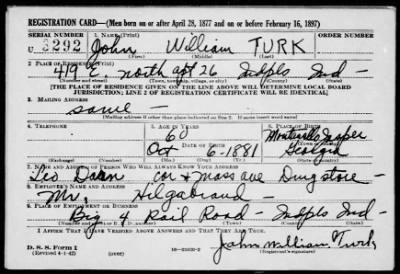 REGISTRATION CARD—(Men born on or after April 28, 1877 and on or before February 16, 1897)
SERIAL NUMBER 1. NAME (Print)
U 3292 John William TURK
(First) (Middle) (Last)
2. PLACE OF RESIDENCE (Print)
419 E. North apt 26 Indpls Ind -
(Number and street) (Town, township, village, or city) (County) (State)
[THE PLACE OF RESIDENCE GIVEN ON THE LINE ABOVE WILL DETERMINE LOCAL BOARD
JURISDICTION; LINE 2 OF REGISTRATION CERTIFICATE WILL BE IDENTICAL]
3. MAILING ADDRESS
same -
[Mailing address if other than place indicated on line 2. If same insert word same]
4. TELEPHONE 5. AGE IN YEARS 6. PLACE OF BIRTH
60 Monticello Jasper
DATE OF BIRTH
Oct 6 - 1881 Georgia
(Exchange) (Number) (Mo.) (Day) (Yr.) (State or country)
7. NAME AND ADDRESS OF PERSON WHO WILL ALWAYS KNOW YOUR ADDRESS
Leo Daan cor + Mass ave Drug store -
8. EMPLOYER'S NAME AND ADDRESS
Mr. Hilgabraud -
9. PLACE OF EMPLOYMENT OR BUSINESS
Big 4 Rail Road - Indpls Ind -
(Number and street or R. F. D. number) (Town) (County) (State)
I AFFIRM THAT I HAVE VERIFIED ABOVE ANSWERS AND THAT THEY ARE TRUE.
D. S. S. FORM 1
(Revised 4-1-42) (over)
John William Turk
(Registrant's signature)